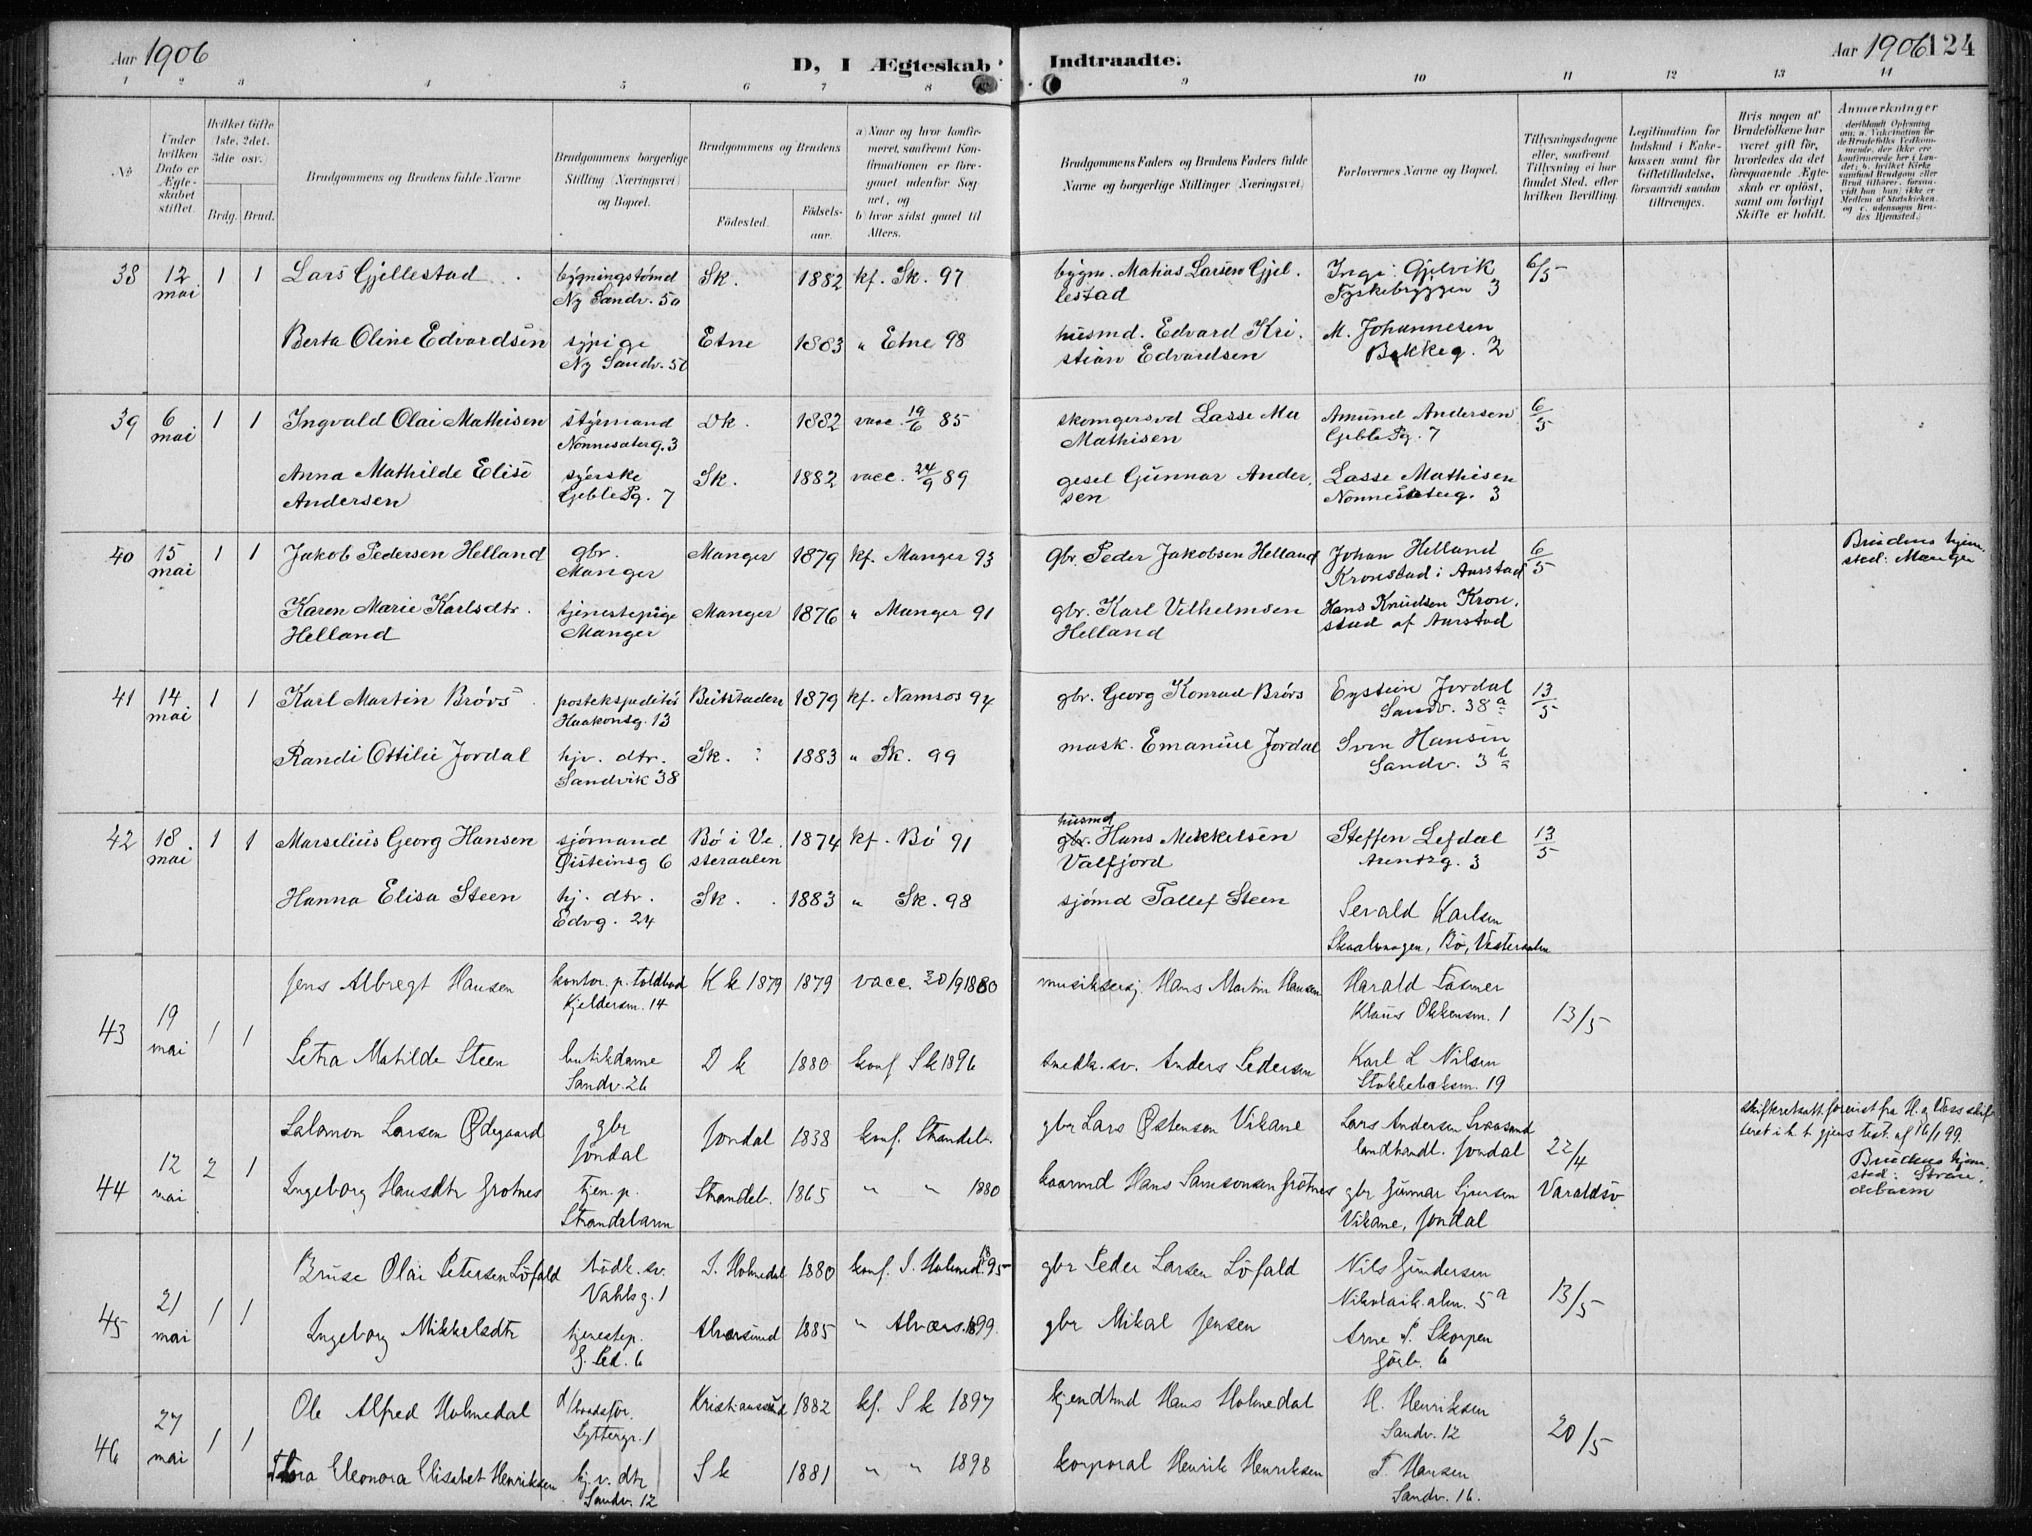 Aar 1906
D, I Ægteskab Indtraadte.
Aar 1906 124
1 2 3 4 5 6 7 8 9 10 11 12 13 14
No
Under hvilken Dato er Ægteskabet stiftet.
Hvilket Gifte (1ste, 2det, 3die osv.)
Brdg. Brud.
Brudgommens og Brudens fulde Navne
Brudgommens borgerlige Stilling (Næringsvei) og Bopæl.
Brudgommens og Brudens
Fødested.
Fødselsaar.
a) Naar og hvor konfirmeret, saafremt Konfirmationen er foregaaet udenfor Sognet, og
b) hvor sidst gaaet til Alters.
Brudgommens Faders og Brudens Faders fulde Navne og borgerlige Stillinger (Næringsvei)
Forlovernes Navne og Bopæl.
Tillysningsdagene eller, saafremt Tillysning ei har fundet Sted, efter hvilken Bevilling.
Legitimation for Indskud i Enkekassen samt for Giftetilladelse, forsaavidt saadan tiltrænges.
Hvis nogen af Brudefolkene har været gift før, hvorledes da det foregaaende Ægteskab er opløst, samt om lovligt Skifte er holdt.
Anmærkninger
38 12 mai 1 1 Lars Gjellestad bygningstømd Ny Sandv. 50 Sk. 1882 kf. Sk. 97 bygm. Matias Larsen Gjellestad Inga Gjelvik Tyskebryggen 3 6/5
Berta Oline Edvardsen sypige Ny Sandv. 50 Etne 1883 " Etne 98 husmd. Edvard Kristian Edvardsen M. Johannesen Bakkeg. 2
39 6 mai 1 1 Ingvald Olai Mathisen styrmand Nonnesæterg. 3 Dk. 1882 vacc. 19/6 85 skomgersvd Lasse Ma Mathisen Amund Andersen Geble Pg. 7 6/5
Anna Mathilde Elise Andersen syerske Geble Pg. 7 Sk. 1882 vacc. 24/9 89 gesel Gunnar Andersen Lasse Mathisen Nonnesæterg. 3
40 15 mai 1 1 Jakob Pedersen Helland gbr. Manger Manger 1879 kf. Manger 93 Gbr. Peder Jakobsen Helland Johan Helland Kronstad i Aarstad 6/5 Brudens hjemsted: Manger
Karen Marie Karlsdtr. Helland tjenestepige Manger Manger 1876 " Manger 91 gbr. Karl Vilhelmsen Helland Hans Knudsen Kronstad af Aarstad
41 14 mai 1 1 Karl Martin Brørs postekspeditør Haakonsg. 13 Beitstaden 1879 kf. Namsos 94 gbr. Georg Konrad Brørs Eystein Jordal Sandv. 38 a 13/5
Randi Ottilie Jordal hjv. dtr. Sandvik 38 Sk. 1883 " Sk. 99 mask. Emanuel Jordal Sven Hansen Sandv. 3
42 18 mai 1 1 Marselius Georg Hansen sjømand Øisteinsg 6 Bø i Vesteraalen 1874 kf. Bø 91 husmd gbr. Hans Mikkelsen Valfjord Steffen Lefdal Arentzg. 3 13/5
Hanna Elisa Steen hj. dtr. Edvg. 24 Sk. 1883 " Sk. 98 sjømd Tallef Steen Sevald Karlsen Bø, Vesteraalen
43 19 mai 1 1 Jens Albregt Hansen kontor. p. Toldbod Kjeldersm. 14 Kk 1879 1879 vacc. 30/9 1880 musiksersj. Hans Martin Hansen Harald Fasmer Klaus Okkensm. 1 13/5
Petra Matilde Steen butikdame Sandv. 26 Dk 1880 konf Sk 1896 smedk. sv. Anders Pedersen Karl L Nilsen Stokkebæksm. 19
44 12 mai 2 1 Salomon Larsen Ødegaard gbr Jondal Jondal 1838 konf. Strandeb. gbr Lars Østensen Vikane Lars Andersen landhandl. Jondal 22/4 Varaldsø skifteretsatt. forevist fra H. og Voss skifteret gjens test. af 16/1 99.
Ingeborg Hansdtr Grotnes tjen. p. Strandebarm Strandeb. 1865 " " 1880 Hans Samsonsen Grotnes gbr Gunnar Vikane, Jondal Brudens hjemsted: Strandebarm
45 21 mai 1 1 Bruse Olai Petersen Løfald bødk. sv. Vahlsg. 1 S. Holmedal 1880 konf. S. Holmed. 1895 gbr Peder Larsen Løfald Nils Gundersen Nikolaik. alm. 5 a 13/5
Ingeborg Mikkelsdtr tjenestep. J. Led. 6 Alversund 1885 " Alvers. 1899. gbr Mikal Jensen Arne P. Skorpen 6
46 27 mai 1 1 Ole Alfred Holmedal Lyttergr. 1 Kristianssund 1882 kf. Sk 1897 Hans Holmedal H. Henriksen Sandv. 12 20/5
Thora Eleonora Elisabet Henriksen hj. v. dtr Sandv. 12 Sk 1881 " " 1898 korporal Henrik Henriksen T. Hansen Sandv. 16.